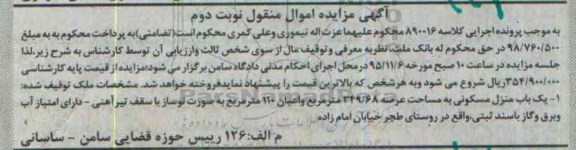 آگهی مزایده اموال منقول نوبت دوم
به موجب پرونده اجرایی کلاسه ۸۹۰۰۱۶ محکوم علیهما عزت اله تیموری وعلی کمری محکوم است(تضامنی)به پرداخت محکوم به به مبلغ
۹۸/۷۶۰/۵۰۰ در حق محکوم له بانک ملت،نظریه معرفی وتوقیف مال از سوی شخص ثالث وارزیابی آن توسط کارشناس به شرح زیر،لذا
جلسه مزایده در ساعت ۱۰ صبح مورخه ۹۵/۱۱/۶ درمحل اجرای احکام مدنی دادگاه سامن برگزار می شود؛مزایده از قیمت پایه کارشناسی
۳۵۴/۹۰۰/۰۰۰ریال شروع می شود وبه هرشخص که بالاترین قیمت را پیشنهاد نمایدفروخته خواهد شد. مشخصات ملک توقیف شده:
۱- یک باب منزل مسکونی به مساحت عرصه ۳۴۹/۶۸ مترمربع واعیان ۱۱۰ مترمربع به صورت نوساز با سقف تیرآهنی - دارای امتیاز آب
وبرق وگاز باسند ثبتی،واقع در روستای طجر خیابان امام زاده
م الف:۱۲۶ رییس حوزه قضایی سامن - ساسانی